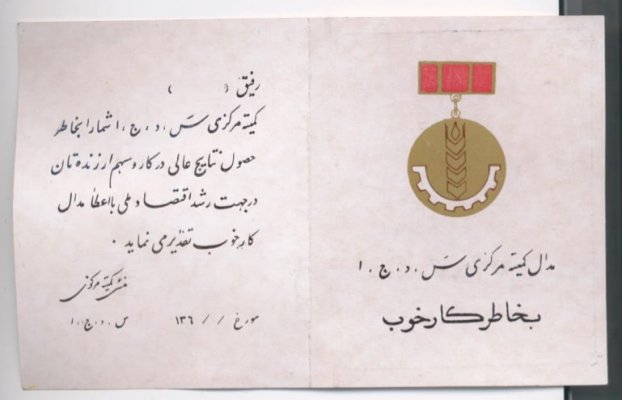 مدال کمیته مرکزی س . د . ج . ا
بخاطر کار خوب
رفیق (          )
کمیته مرکزی س . د . ج . ا شما را بخاطر
حصول نتایج عالی در کار و سهم ارزنده تان
در جهت رشد اقتصاد ملی با اعطأ مدال
کار خوب تقدیر می نماید .
منشی کمیته مرکزی
س . د . ج . ا
مورخ / / ۱۳۶